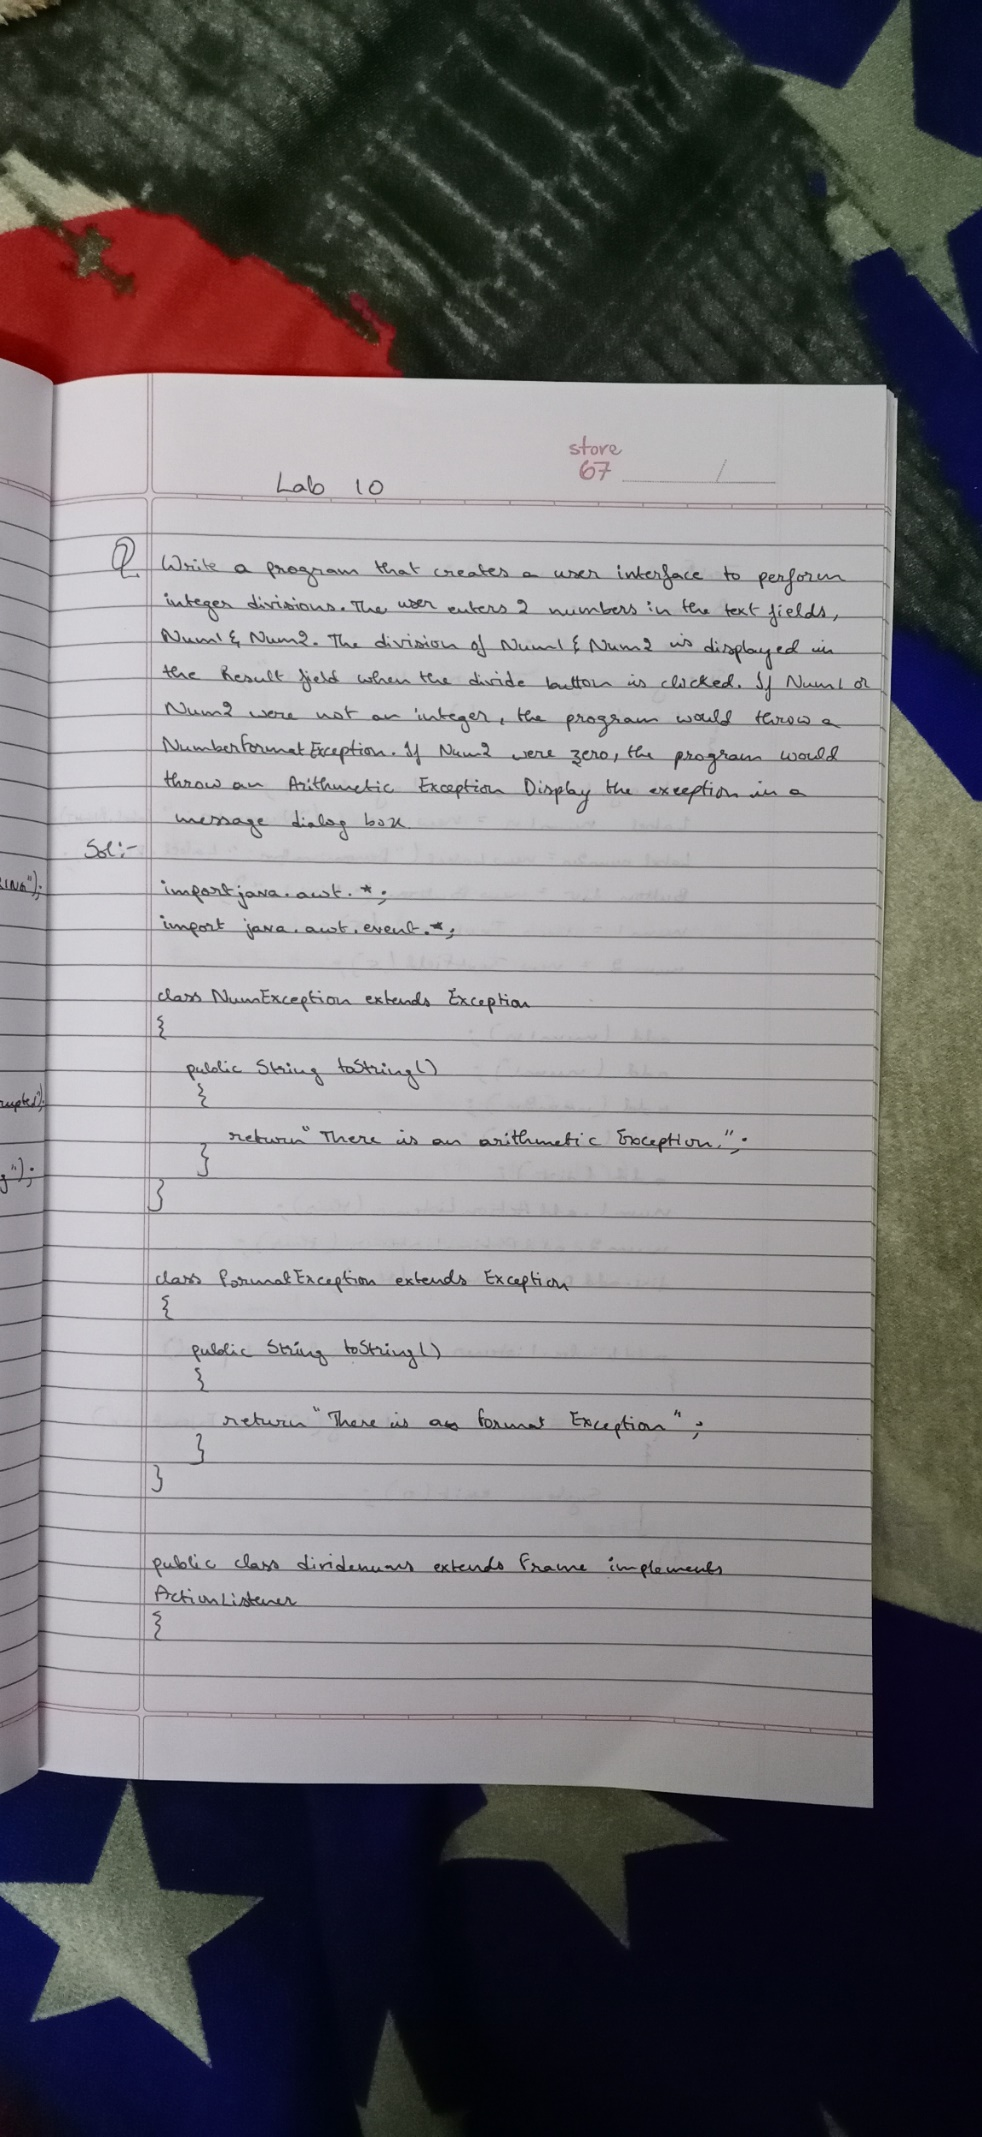 store
67 /
Lab 10
Q Write a program that creates a user interface to perform
integer divisions. The user enters 2 numbers in the text fields,
Num1 & Num2. The division of Num1 & Num2 is displayed in
the Result field when the divide button is clicked. If Num1 or
Num2 were not an integer, the program would throw a
NumberFormatException. If Num2 were zero, the program would
throw an Arithmetic Exception Display the exception in a
message dialog box.
Sol:-
import java.awt.*;
import java.awt.event.*;
class NumException extends Exception
{
public String toString()
{
return "There is an arithmetic Exception.";
}
}
class FormatException extends Exception
{
public String toString()
{
return "There is a format Exception";
}
}
public class dividenums extends Frame implements
ActionListener
{